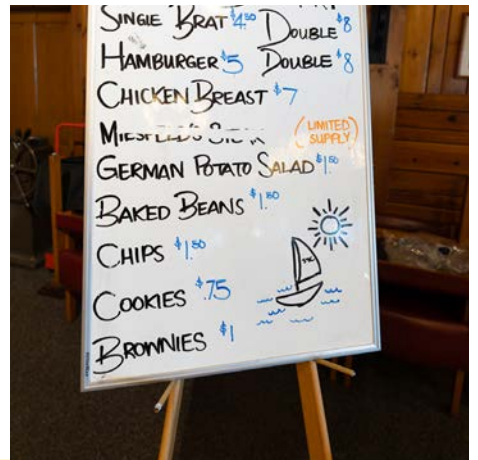 SINGLE BRAT $4.50 DOUBLE $8
HAMBURGER $5 DOUBLE $8
CHICKEN BREAST $7
(LIMITED SUPPLY)
GERMAN POTATO SALAD $1.50
BAKED BEANS $1.50
CHIPS $1.50
COOKIES $.75
BROWNIES $1